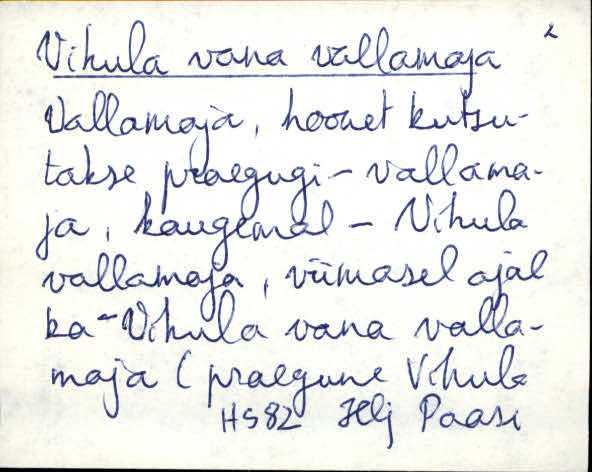 2
Vihula vana vallamaja
Vallamaja, hoonet kutsu-
takse praegugi - vallama-
ja, kaugemal - Vihula
vallamaja, viimasel ajal
ka - Vihula vana valla-
maja (praegune Vihula
HS82 Hlj Paasi